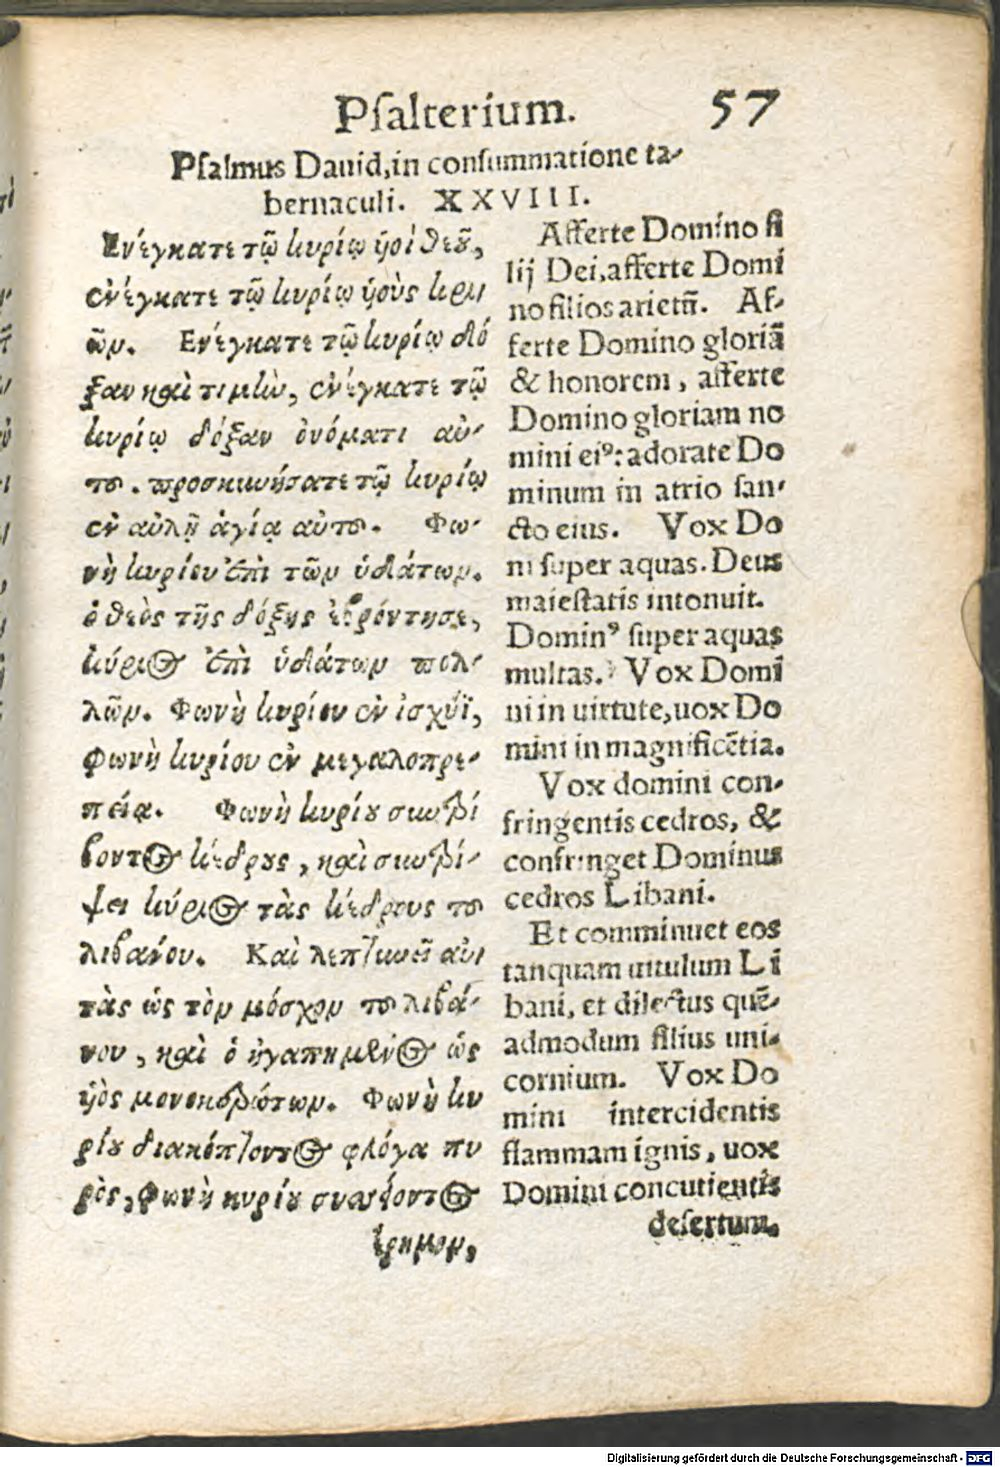 Psalterium. 57
Psalmus Dauid, in consummatione ta-
bernaculi. XXVIII.
Ενέγκατε τῷ κυρίῳ ὑοὶ θεοῦ,
ἐνέγκατε τῷ κυρίῳ ὑοὺς κρι
ῶν. Ενέγκατε τῷ κυρίῳ δό
ξαν καὶ τιμὴν, ἐνέγκατε τῷ
κυρίῳ δόξαν ὀνόματι αὐ-
τοῦ. προσκυνήσατε τῷ κυρίῳ
ἐν αὐλῇ ἁγίᾳ αὐτοῦ. Φω-
νὴ κυρίου ἐπὶ τῶν ὑδάτων.
ὁ θεὸς τῆς δόξης ἐβρόντησε,
κύριος ἐπὶ ὑδάτων πολ-
λῶν. Φωνὴ κυρίου ἐν ἰσχύϊ,
φωνὴ κυρίου ἐν μεγαλοπρε-
πείᾳ. Φωνὴ κυρίου συντρί
βοντος κέδρους, καὶ συντρί-
ψει κύριος τὰς κέδρους τοῦ
λιβάνου. Καὶ λεπτυνεῖ αὐ
τὰς ὡς τὸν μόσχον τοῦ λιβά-
νου, καὶ ὁ ἠγαπημένος ὡς
ὑὸς μονοκερώτων. Φωνὴ κυ
ρίου διακόπτοντος φλόγα πυ
ρὸς, φωνὴ κυρίου συσσείοντος
ἔρημον,
Afferte Domino fi
lij Dei, afferte Domi
no filios arietū. Af-
ferte Domino gloriā
& honorem, afferte
Domino gloriam no
mini eiꝰ: adorate Do
minum in atrio san-
cto eius. Vox Do
ni super aquas. Deus
maiestatis intonuit.
Dominꝰ super aquas
multas. Vox Domi
ni in uirtute, uox Do
mini in magnificētia.
Vox domini con-
fringentis cedros, &
confringet Dominus
cedros Libani.
Et comminuet eos
tanquam uitulum Li
bani, et dilectus quē-
admodum filius uni-
cornium. Vox Do
mini intercidentis
flammam ignis, uox
Domini concutientis
desertum.
Digitalisierung gefördert durch die Deutsche Forschungsgemeinschaft - DFG